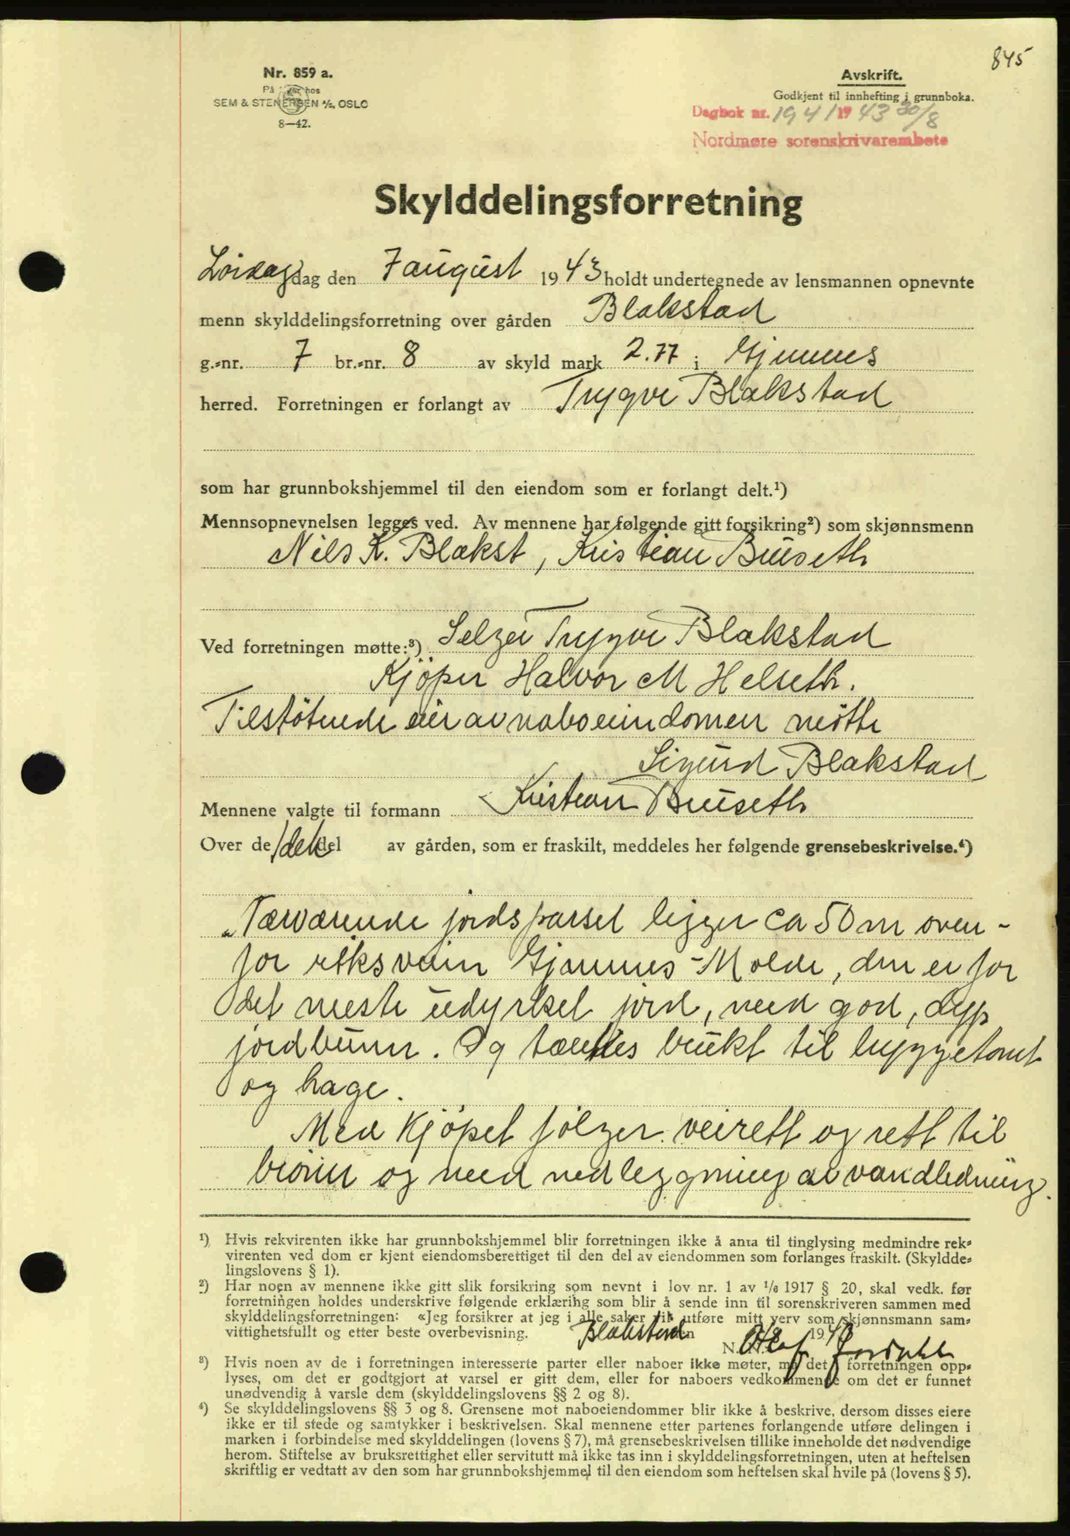 845
Nr. 859 a.
På lager hos
SEM & STENERSEN A/S, OSLO
8—42.
Avskrift.
Godkjent til innhefting i grunnboka.
Dagbok nr. 1941 1943 30/8
Nordmøre sorenskrivarembete
Skylddelingsforretning
Loidagsdag den 7 august 1943 holdt undertegnede av lensmannen opnevnte
menn skylddelingsforretning over gården Blakstad
g.-nr. 7 br.-nr. 8 av skyld mark 2.77 i Gjemnes
herred. Forretningen er forlangt av Trygve Blakstad
som har grunnbokshjemmel til den eiendom som er forlangt delt.¹)
Mennsopnevnelsen legges ved. Av mennene har følgende gitt forsikring²) som skjønnsmenn
Nils K. Blakst, Kristian Buseth
Ved forretningen møtte:³) Selger Trygve Blakstad
Kjöper Halvor M Helseth.
Tilstötende eier av naboeiendomen mötte
Sigurd Blakstad
Mennene valgte til formann Kristian Buseth
Over de / del av gården, som er fraskilt, meddeles her følgende grensebeskrivelse.⁴)
„Nærværende jordsparsel ligger ca 50 m oven-
for riksveien Gjemnes - Molde, den er for
det meste udyrket jord, med god, dyp
jordbunn. Og tænkes brukt til byggetomt
og hage.
Med Kjöpet fölger veirett og rett til
brönn og med nedlegging av vandledning.
¹) Hvis rekvirenten ikke har grunnbokshjemmel blir forretningen ikke å anta til tinglysing medmindre rek-
virenten ved dom er kjent eiendomsberettiget til den del av eiendommen som forlanges fraskilt. (Skyldde-
lingslovens § 1).
²) Har noen av mennene ikke gitt slik forsikring som nevnt i lov nr. 1 av 1/6 1917 § 20, skal vedk. før
forretningen holdes underskrive følgende erklæring som blir å sende inn til sorenskriveren sammen med
skylddelingsforretningen: «Jeg forsikrer at jeg i alle saker vil utføre mitt verv som skjønnsmann sam-
vittighetsfullt og etter beste overbevisning. Blakstad N. Olaf Jordahl
³) Hvis noen av de i forretningen interesserte parter eller naboer ikke møter, må det i forretningen opp-
lyses, om det er godtgjort at varsel er gitt dem, eller for naboers vedkommende om det er funnet
unødvendig å varsle dem (skylddelingslovens §§ 2 og 8).
⁴) Se skylddelingslovens §§ 3 og 8. Grensene mot naboeiendommer blir ikke å beskrive, dersom disses eiere
ikke er til stede og samtykker i beskrivelsen. Skal mennene etter partenes forlangende utføre delingen i
marken i forbindelse med skylddelingen (lovens § 7), må grensebeskrivelsen tillike inneholde det nødvendige
herom. Stiftelse av bruksrettighet eller servitutt må ikke tas inn i skylddelingsforretningen, uten at heftelsen
skriftlig er vedtatt av den som har grunnbokshjemmel til den eiendom som heftelsen skal hvile på (lovens § 5).